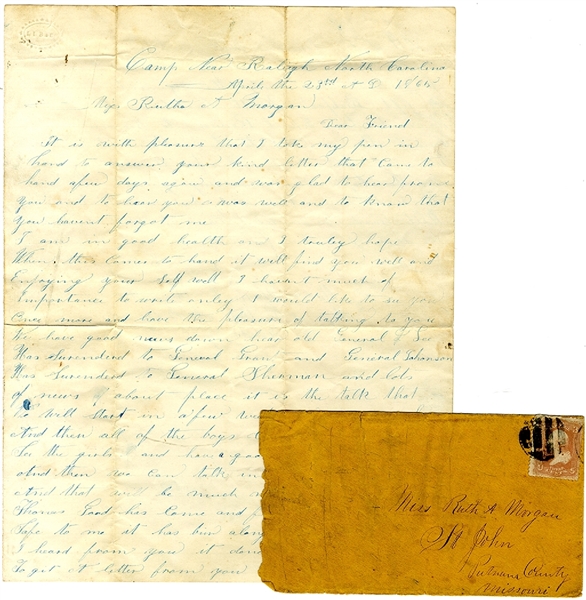 Camp Near Raligh North Carolina
April the 23rd A D 1865
Miss Rutha A Morgan
Dear Friend
It is with pleasure that I take my pen in
hand to answer your kind letter that came to
hand afew days again and was glad to hear from
you and to hear you was well and to know that
you havent forgot me
I am in good health and I truley hope
When this comes to hand it will find you well and
Enjoying your self well I havent much of
importance to write onley I would like to see you
once more and have the pleasure of talking to you
We have good news down hear old General Lee
Has Surenderd to General Grant and General Johnson
Has Surenderd to General Sherman and lots
of news of about place it is the talk that
to will start in afew
And then all of the boys
See the girls and have a good
And then we can talk
And that will be much
Thanks has come and
to me it has bin along
I heard from you it
To get it letter from you
Miss Ruth A Morgan
St John
Putnam County
Missouri